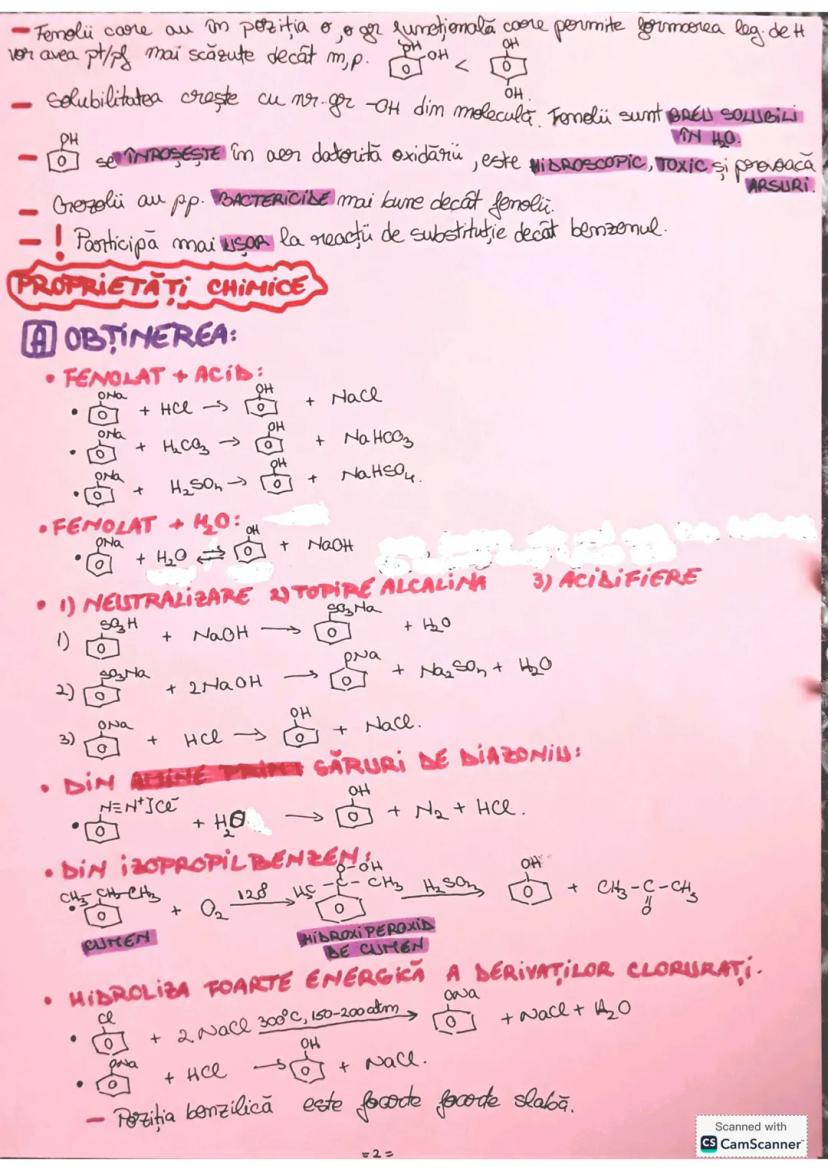 - Fenolii care au în poziția o, o gr funcțională care permite formarea leg. de H
vor avea pt/pf mai scăzute decât m,p. OH OH < OH OH
- Solubilitatea crește cu nr. gr -OH din moleculă. Fenolii sunt GREU SOLUBILI
ÎN H2O.
- OH se ÎNROȘEȘTE în aer datorită oxidării, este HIDROSCOPIC, TOXIC și provoacă
ARSURI.
- Crezolii au pp. BACTERICIDE mai bune decât fenolii.
- ! Participă mai UȘOR la reacții de substituție decât benzenul.
PROPRIETĂȚI CHIMICE
A OBȚINEREA:
• FENOLAT + ACID:
• ONa + HCl → OH + NaCl
• ONa + H2CO3 → OH + NaHCO3
• ONa + H2SO4 → OH + NaHSO4.
• FENOLAT + H2O:
• ONa + H2O ⇌ OH + NaOH
• 1) NEUTRALIZARE 2) TOPIRE ALCALINA 3) ACIDIFIERE
1) SO3H + NaOH → SO3Na + H2O
2) SO3Na + 2NaOH → ONa + Na2SO4 + H2O
3) ONa + HCl → OH + NaCl.
• DIN SĂRURI DE DIAZONIU:
• N≡N+]Cl- + H2O → OH + N2 + HCl.
• DIN IZOPROPILBENZEN:
• CH3-CH-CH3 + O2 120° → H3C-C-CH3 O-OH H2SO4 → OH + CH3-C-CH3 O
CUMEN HIDROXIPEROXID
DE CUMEN
• HIDROLIZA FOARTE ENERGICĂ A DERIVAȚILOR CLORURAȚI.
• Cl + 2 NaCl 300°C, 150-200atm → ONa + NaCl + H2O
• ONa + HCl → OH + NaCl.
- Poziția benzilică este foarte foarte slabă.
=2=
Scanned with
CS CamScanner